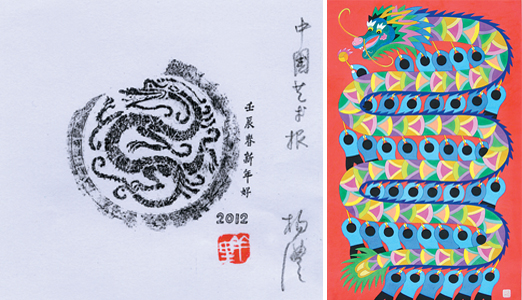 中国艺术报
壬辰春新年好
2012